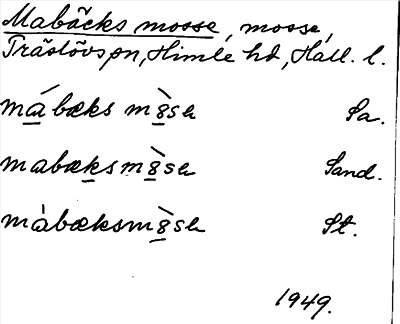 Mabäcks mosse, mosse,
Träslövs sn, Himle hd, Hall. l.
mábæks mòse Sa.
mabæksmòse Sand.
màbæksmòse St.
1949.